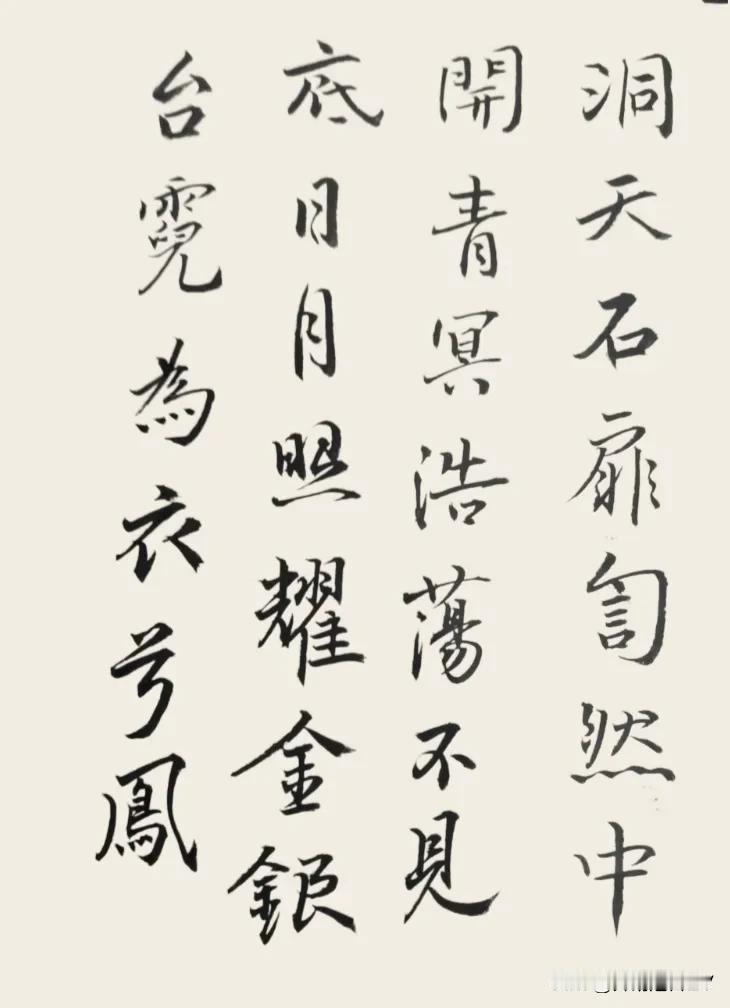 洞天石扉訇然中
開青冥浩蕩不見
底日月照耀金銀
台霓為衣兮鳳